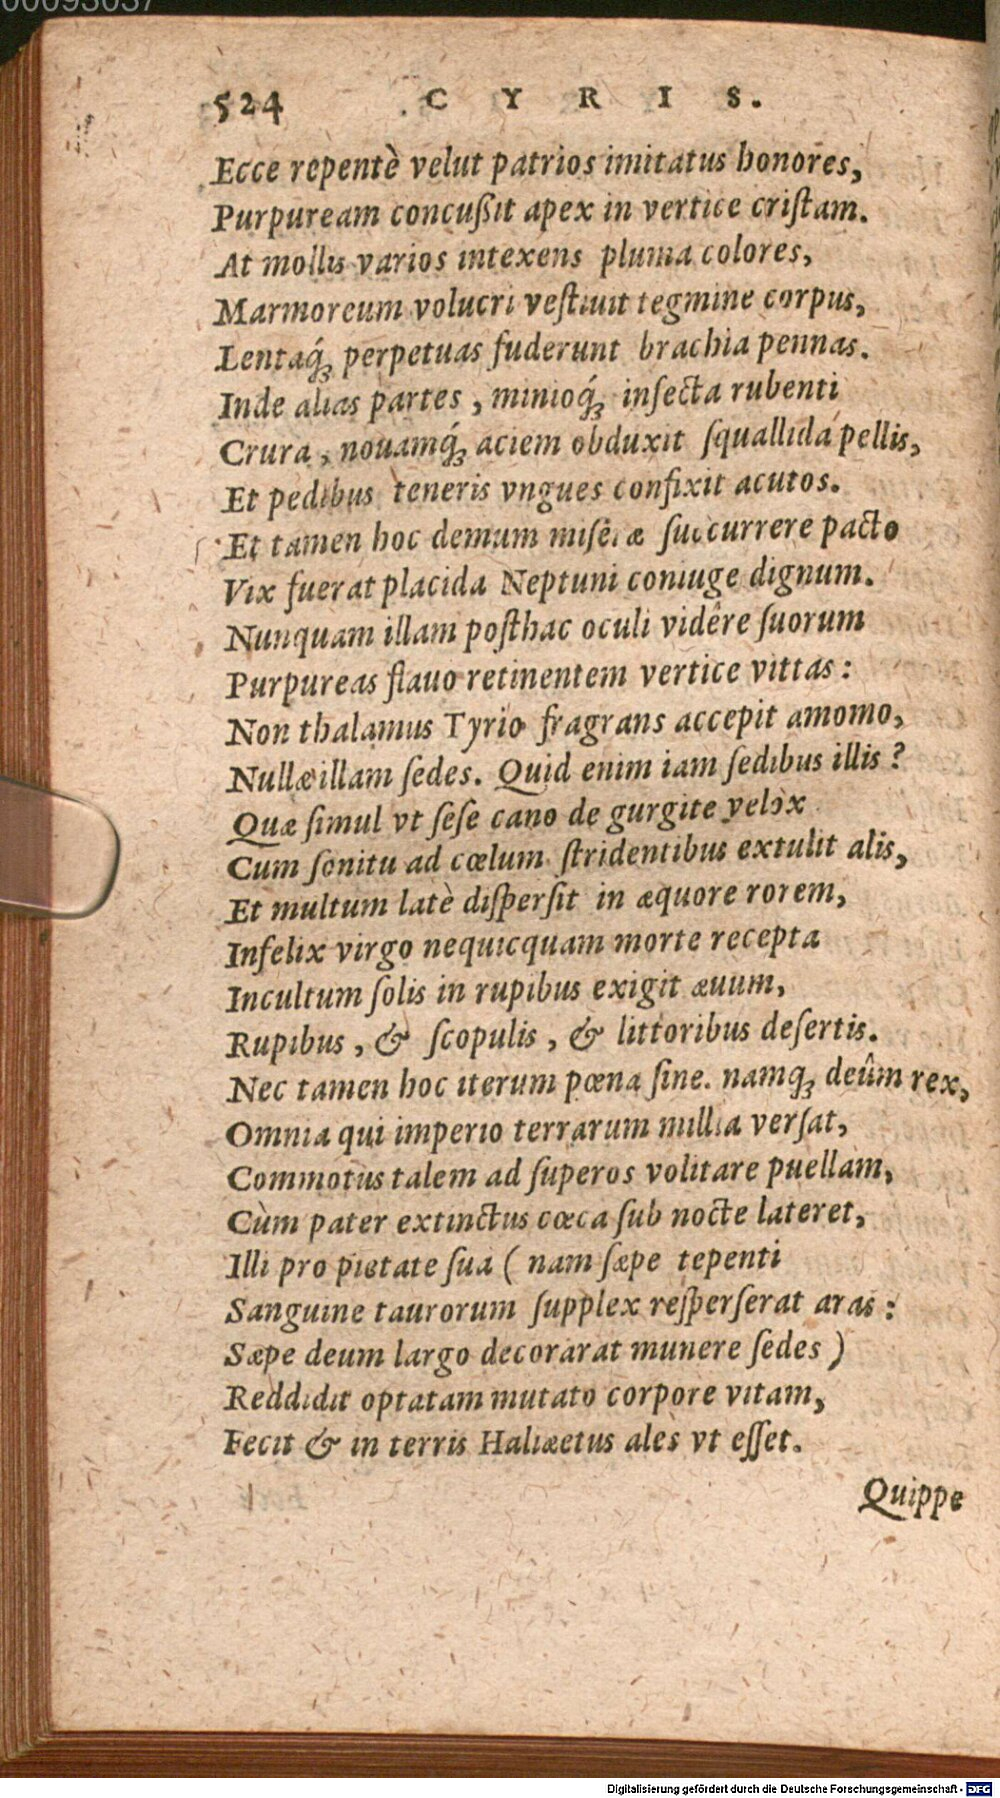 00093037
524 CYRIS.
Ecce repentè velut patrios imitatus honores,
Purpuream concußit apex in vertice criſtam.
At mollis varios intexens pluma colores,
Marmoreum volucri veſtiuit tegmine corpus,
Lentaq́ꝫ perpetuas fuderunt brachia pennas.
Inde alias partes, minioq́ꝫ inſecta rubenti
Crura, nouamq́ꝫ aciem obduxit ſquallida pellis,
Et pedibus teneris vngues confixit acutos.
Et tamen hoc demum miſeræ ſuccurrere pacto
Vix fuerat placida Neptuni coniuge dignum.
Nunquam illam poſthac oculi vidêre ſuorum
Purpureas flauo retinentem vertice vittas:
Non thalamus Tyrio fragrans accepit amomo,
Nullæ illam ſedes. Quid enim iam ſedibus illis?
Quæ ſimul vt ſeſe cano de gurgite velox
Cum ſonitu ad cœlum ſtridentibus extulit alis,
Et multum latè diſperſit in æquore rorem,
Infelix virgo nequicquam morte recepta
Incultum ſolis in rupibus exigit æuum,
Rupibus, & ſcopulis, & littoribus deſertis.
Nec tamen hoc iterum pœna ſine. namqꝫ deûm rex,
Omnia qui imperio terrarum millia verſat,
Commotus talem ad ſuperos volitare puellam,
Cùm pater extinctus cœca ſub nocte lateret,
Illi pro pietate ſua (nam ſæpe tepenti
Sanguine taurorum ſupplex reſperſerat aras:
Sæpe deum largo decorarat munere ſedes)
Reddidit optatam mutato corpore vitam,
Fecit & in terris Haliæetus ales vt eſſet.
Quippe
Digitalisierung gefördert durch die Deutsche Forschungsgemeinschaft - DFG